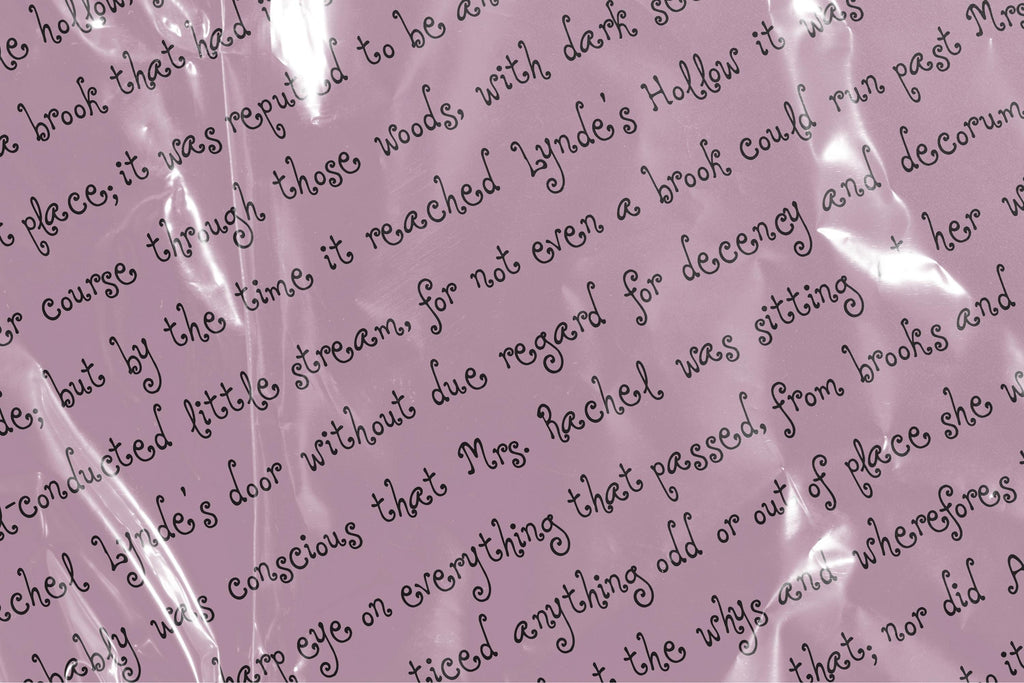 hollow,
a brook that had
place; it was reputed to be
course through those woods, with dark
but by the time it reached Lynde's Hollow it was
-conducted little stream, for not even a brook could run past Mrs
Lynde's door without due regard for decency and decorum
was conscious that Mrs. Rachel was sitting her
eye on everything that passed, from brooks and
anything odd or out of place she
the whys and wherefores
that; nor did